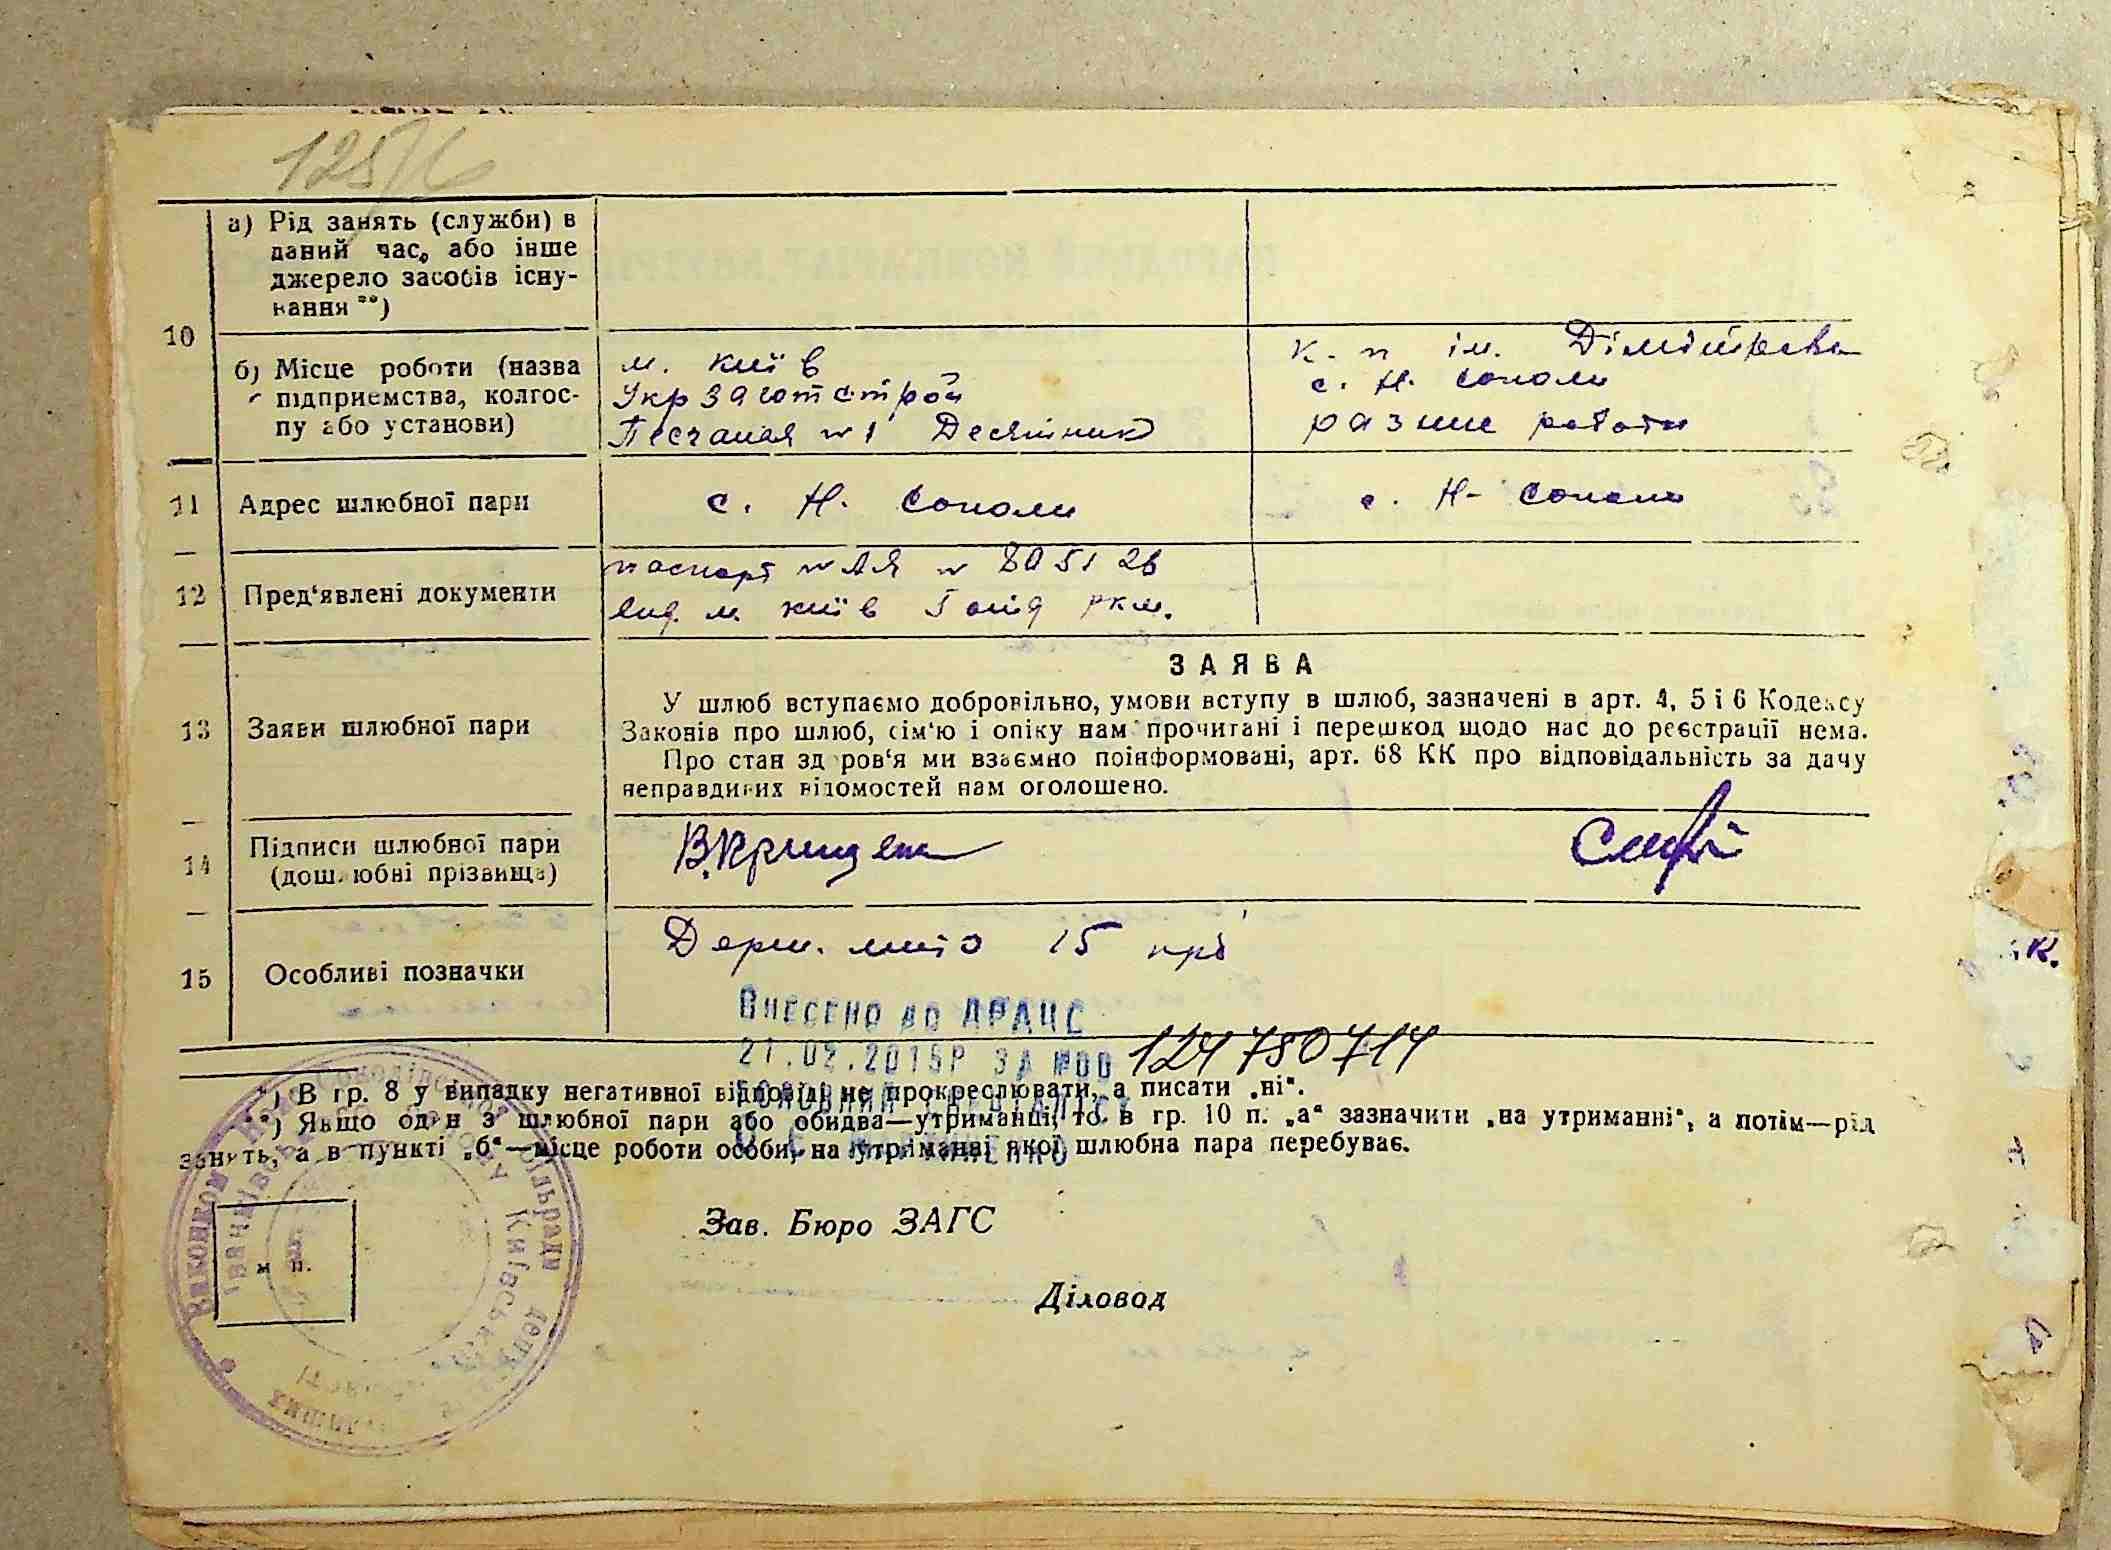 125/6
а) Рід занять (служби) в
даний час, або інше
джерело засобів існу-
вання **)
10
б) Місце роботи (назва
підприємства, колгос-
пу або установи)
м. Київ
Укрзаготстрой
Песчаная №1 Десятник
к-п ім. Дімітрова
с. Н. Соколи
разние работи
11
Адрес шлюбної пари
с. Н. Соколи
с. Н- Соколи
12
Пред'явлені документи
паспорт
вид. м. Київ 5 ркм.
ЗАЯВА
13
Заяви шлюбної пари
У шлюб вступаємо добровільно, умови вступу в шлюб, зазначені в арт. 4, 5 і 6 Кодексу
Законів про шлюб, сім'ю і опіку нам прочитані і перешкод щодо нас до реєстрації нема.
Про стан здоров'я ми взаємно поінформовані, арт. 68 КК про відповідальність за дачу
неправдивих відомостей нам оголошено.
14
Підписи шлюбної пари
(дошлюбні прізвища)
15
Особливі позначки
Держ. мито 15 крб
ВНЕСЕНО ДО ДРАЦС
21.02.2015Р ЗА №00 124780714
ГОЛОВНИЙ СПЕЦІАЛІСТ
*) В гр. 8 у випадку негативної відповіді не прокреслювати, а писати „ні“.
**) Якщо один з шлюбної пари або обидва—утриманці, то в гр. 10 п. „а“ зазначити „на утриманні“, а потім—рід
занять, а в пункті „б“—місце роботи особи, на утриманні якої шлюбна пара перебуває.
Зав. Бюро ЗАГС
м п.
Діловод